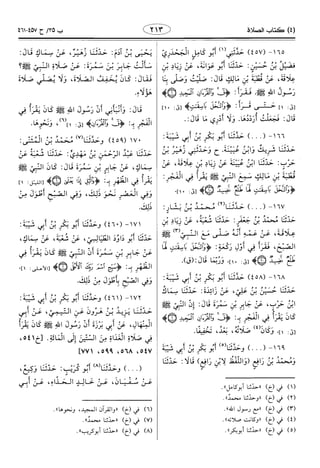 (٤) كتاب الصلاة
٢١٣
ب ٣٥/ ح ٤٥٧-٤٦١
١٦٥- (٤٥٧) حَدَّثَنِي(١) أَبُو كَامِلٍ الْجَحْدَرِيُّ
فُضَيْلُ بْنُ حُسَيْنٍ: حَدَّثَنَا أَبُو عَوَانَةَ، عَنْ زِيَادِ بْنِ
عِلَاقَةَ، عَنْ قُطْبَةَ بْنِ مَالِكٍ قَالَ: صَلَّيْتُ وَصَلَّى بِنَا
رَسُولُ اللهِ ﷺ. فَقَرَأَ: ﴿قٓ وَالْقُرْآنِ الْمَجِيدِ﴾
[ق: ١]، حَتَّى قَرَأَ: ﴿وَالنَّخْلَ بَاسِقَاتٍ﴾ [ق: ١٠]
قَالَ: فَجَعَلْتُ أُرَدِّدُهَا. وَلَا أَدْرِي مَا قَالَ.
١٦٦- (...) حَدَّثَنَا أَبُو بَكْرِ بْنُ أَبِي شَيْبَةَ:
حَدَّثَنَا شَرِيكٌ وَابْنُ عُيَيْنَةَ. ح وَحَدَّثَنِي زُهَيْرُ بْنُ
حَرْبٍ: حَدَّثَنَا ابْنُ عُيَيْنَةَ عَنْ زِيَادِ بْنِ عِلَاقَةَ، عَنْ
قُطْبَةَ بْنِ مَالِكٍ سَمِعَ النَّبِيَّ ﷺ يَقْرَأُ فِي الْفَجْرِ:
﴿وَالنَّخْلَ بَاسِقَاتٍ لَهَا طَلْعٌ نَضِيدٌ﴾ [ق: ١٠].
١٦٧- (...) حَدَّثَنَا(٢) مُحَمَّدُ بْنُ بَشَّارٍ:
حَدَّثَنَا مُحَمَّدُ بْنُ جَعْفَرٍ: حَدَّثَنَا شُعْبَةُ، عَنْ زِيَادِ بْنِ
عِلَاقَةَ، عَنْ عَمِّهِ أَنَّهُ صَلَّى مَعَ النَّبِيِّ(٣) ﷺ
الصُّبْحَ، فَقَرَأَ فِي أَوَّلِ رَكْعَةٍ: ﴿وَالنَّخْلَ بَاسِقَاتٍ لَهَا
طَلْعٌ نَضِيدٌ﴾ [ق: ١٠]. وَرُبَّمَا قَالَ: (ق).
١٦٨- (٤٥٨) حَدَّثَنَا أَبُو بَكْرِ بْنُ أَبِي شَيْبَةَ:
حَدَّثَنَا حُسَيْنُ بْنُ عَلِيٍّ، عَنْ زَائِدَةَ: حَدَّثَنَا سِمَاكُ
ابْنُ حَرْبٍ، عَنْ جَابِرِ بْنِ سَمُرَةَ قَالَ: إِنَّ النَّبِيَّ ﷺ
كَانَ يَقْرَأُ فِي الْفَجْرِ بِـ: ﴿قٓ وَالْقُرْآنِ الْمَجِيدِ﴾
[ق: ١]. وَكَانَ(٤) صَلَاتُهُ، بَعْدُ، تَخْفِيفًا.
١٦٩- (...) وَحَدَّثَنَا(٥) أَبُو بَكْرِ بْنُ أَبِي شَيْبَةَ
وَمُحَمَّدُ بْنُ رَافِعٍ (وَاللَّفْظُ لِابْنِ رَافِعٍ) قَالَا: حَدَّثَنَا
يَحْيَى بْنُ آدَمَ: حَدَّثَنَا زُهَيْرٌ، عَنْ سِمَاكٍ قَالَ:
سَأَلْتُ جَابِرَ بْنَ سَمُرَةَ، عَنْ صَلَاةِ النَّبِيِّ ﷺ؟
فَقَالَ: كَانَ يُخَفِّفُ الصَّلَاةَ، وَلَا يُصَلِّي صَلَاةَ
هَؤُلَاءِ.
قَالَ: وَأَنْبَأَنِي أَنَّ رَسُولَ اللهِ ﷺ كَانَ يَقْرَأُ فِي
الْفَجْرِ بِـ: ﴿قٓ وَالْقُرْآنِ﴾ [ق: ١](٦)، وَنَحْوِهَا.
١٧٠- (٤٥٩) وَحَدَّثَنَا(٧) مُحَمَّدُ بْنُ الْمُثَنَّى:
حَدَّثَنَا عَبْدُ الرَّحْمَنِ بْنُ مَهْدِيٍّ: حَدَّثَنَا شُعْبَةُ عَنْ
سِمَاكٍ، عَنْ جَابِرِ بْنِ سَمُرَةَ قَالَ: كَانَ النَّبِيُّ ﷺ
يَقْرَأُ فِي الظُّهْرِ بِـ: ﴿وَاللَّيْلِ إِذَا يَغْشَى﴾ [الليل: ١]
وَفِي الْعَصْرِ نَحْوَ ذَلِكَ، وَفِي الصُّبْحِ أَطْوَلَ مِنْ
ذَلِكَ.
١٧١- (٤٦٠) وَحَدَّثَنَا أَبُو بَكْرِ بْنُ أَبِي شَيْبَةَ:
حَدَّثَنَا أَبُو دَاوُدَ الطَّيَالِسِيُّ، عَنْ شُعْبَةَ، عَنْ سِمَاكٍ،
عَنْ جَابِرِ بْنِ سَمُرَةَ أَنَّ النَّبِيَّ ﷺ كَانَ يَقْرَأُ فِي
الظُّهْرِ بِـ: ﴿سَبِّحِ اسْمَ رَبِّكَ الْأَعْلَى﴾ [الأعلى: ١]،
وَفِي الصُّبْحِ بِأَطْوَلَ مِنْ ذَلِكَ.
١٧٢- (٤٦١) وَحَدَّثَنَا أَبُو بَكْرِ بْنُ أَبِي شَيْبَةَ:
حَدَّثَنَا يَزِيدُ بْنُ هَرُونَ عَنِ التَّيْمِيِّ، عَنْ أَبِي
الْمِنْهَالِ، عَنْ أَبِي بَرْزَةَ أَنَّ رَسُولَ اللهِ ﷺ كَانَ يَقْرَأُ
فِي صَلَاةِ الْغَدَاةِ مِنَ السِّتِّينَ إِلَى الْمِائَةِ. [ح٥٤١،
٥٤٧، ٥٦٨، ٥٩٩، ٧٧١]
(...) وَحَدَّثَنَا(٨) أَبُو كُرَيْبٍ: حَدَّثَنَا وَكِيعٌ،
عَنْ سُفْيَانَ، عَنْ خَالِدٍ الْحَذَّاءِ، عَنْ أَبِي
(١) في (خ) «حدثنا أبو كامل».
(٢) في (خ) «وحدثنا محمد».
(٣) في (خ) «مع رسول الله».
(٤) في (خ) «وكانت صلاته».
(٥) في (خ) «حدثنا أبو بكر».
(٦) في (خ) «والقرآن المجيد، ونحوها».
(٧) في (خ) «حدثنا محمد».
(٨) في (خ) «حدثنا أبو كريب».